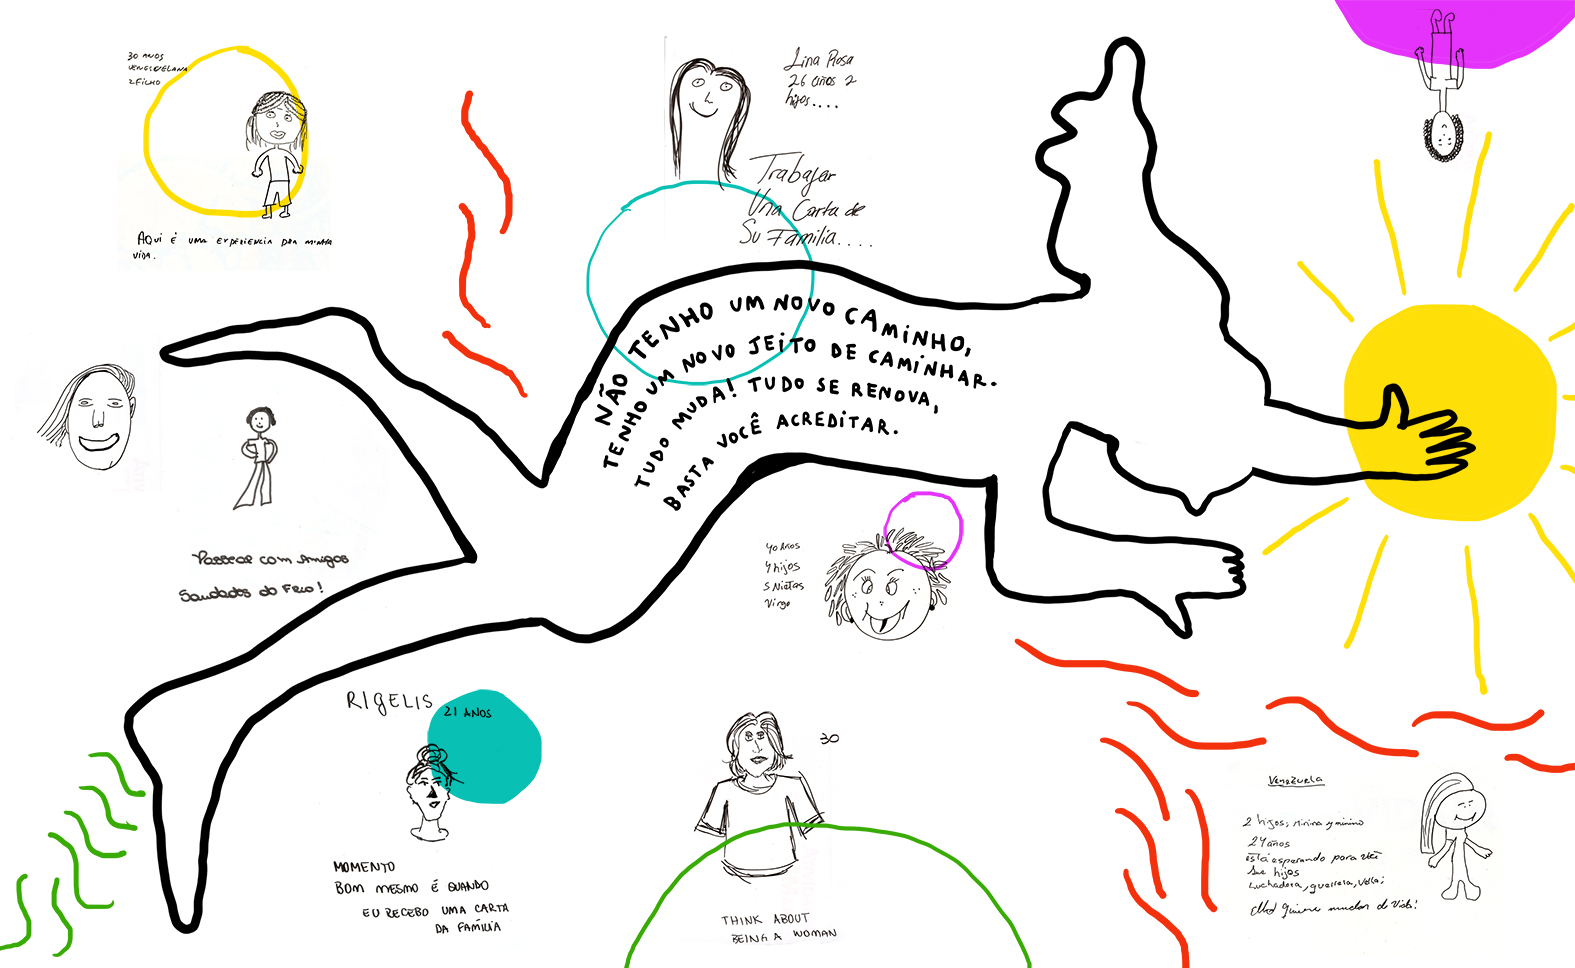 30 ANOS
VENEZUELANA
2 FILHO
AQUI É UMA EXPERIENCIA PRA MINHA
VIDA.
Lina Rosa
26 años 2
hijos....
Trabajar
Una Carta de
Su Familia....
NÃO TENHO UM NOVO CAMINHO,
TENHO UM NOVO JEITO DE CAMINHAR.
TUDO MUDA! TUDO SE RENOVA,
BASTA VOCÊ ACREDITAR.
Passear com Amigos
Saudades do
40 Anos
4 hijos
5 Nietas
Virgo
RIGELIS
21 ANOS
MOMENTO
BOM MESMO É QUANDO
EU RECEBO UMA CARTA
DA FAMÍLIA
30
THINK ABOUT
BEING A WOMAN
Venezuela
2 hijos,
24 años
está esperando para
sus hijos
Luchadora, guerrera,
quiere de vida!